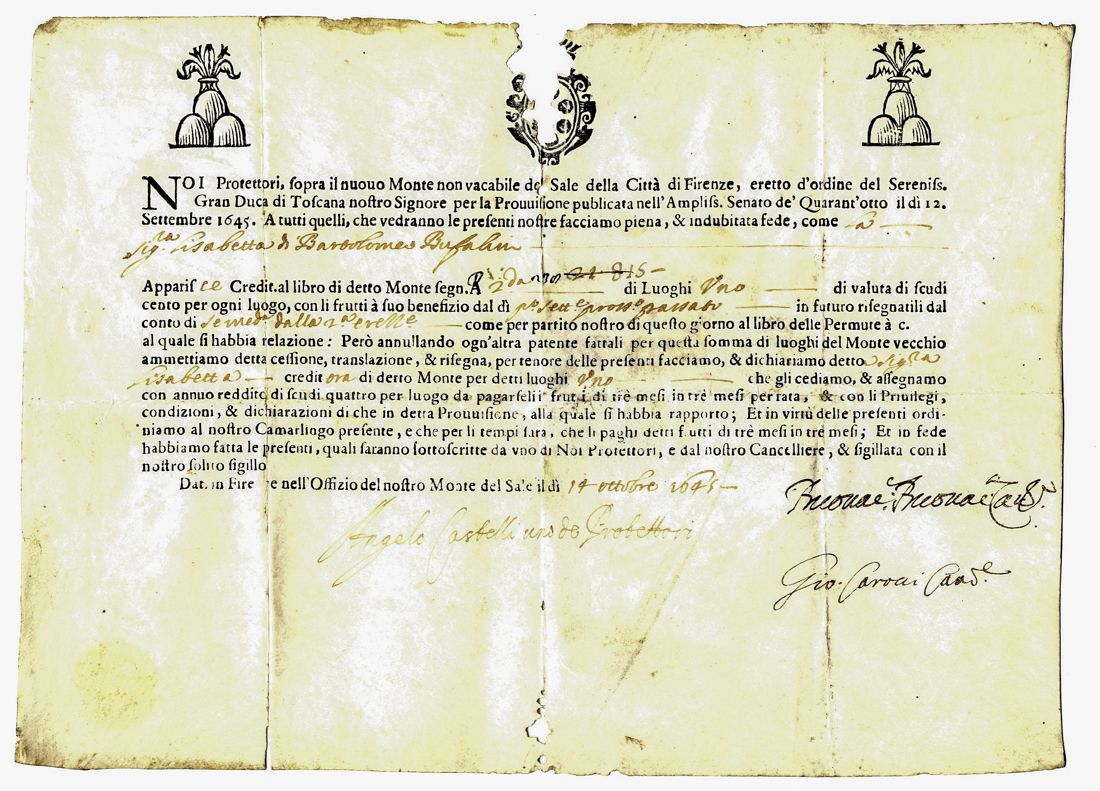 NOI Protettori, sopra il nuouo Monte non vacabile de' Sale della Città di Firenze, eretto d'ordine del Sereniss.
Gran Duca di Toscana nostro Signore per la Prouuisione publicata nell'Ampliss. Senato de' Quarant'otto il dì 12.
Settembre 1645. A tutti quelli, che vedranno le presenti nostre facciamo piena, & indubitata fede, come la
Sig.ra Lisabetta di Bartolomeo Bufalini
Apparisce Credit. al libro di detto Monte segn. A 815 di Luoghi Vno di valuta di scudi
cento per ogni luogo, con li frutti à suo benefizio dal dì p.o sett.e pross.o passato in futuro risegnatili dal
conto di se med.a dalla 2.a erett.e come per partito nostro di questo giorno al libro delle Permute à c.
al quale si habbia relazione: Però annullando ogn'altra patente fattali per questa somma di luoghi del Monte vecchio
ammettiamo detta cessione, translazione, & risegna, per tenore delle presenti facciamo, & dichiariamo detta Sig.ra
Lisabetta creditora di detto Monte per detti luoghi Vno che gli cediamo, & assegnamo
con annuo reddito di scudi quattro per luogo da pagarseli i frutti di trè mesi in trè mesi per rata, & con li Priuilegi,
condizioni, & dichiarazioni di che in detta Prouuisione, alla quale si habbia rapporto; Et in virtù delle presenti ordi-
niamo al nostro Camarlingo presente, e che per li tempi sarà, che li paghi detti frutti di trè mesi in trè mesi; Et in fede
habbiamo fatta le presenti, quali saranno sottoscritte da vno di Noi Protettori, e dal nostro Cancelliere, & sigillata con il
nostro solito sigillo
Dat. in Fire ze nell'Offizio del nostro Monte del Sale il dì 14 ottobre 1645
Angelo Castelli uno de Protettori
Gio. Carocci Canc.e